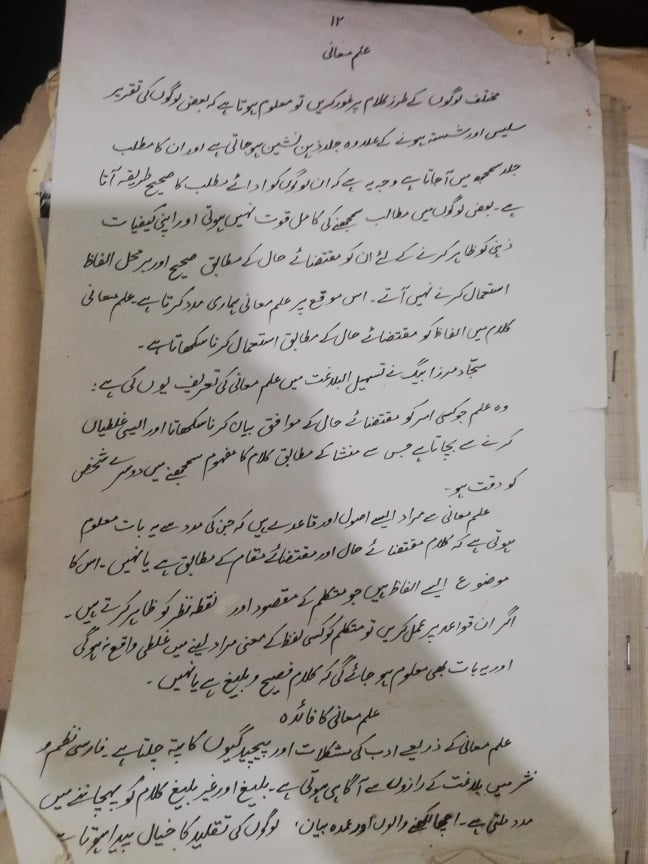 ۱۲
علم معانی
مختلف لوگوں کے طرز کلام پر غور کریں تو معلوم ہوتا ہے کہ بعض لوگوں کی تقریر
سلیس اور شستہ ہونے کے علاوہ جلد ذہن نشین ہو جاتی ہے اور ان کا مطلب
جلد سمجھ میں آ جاتا ہے وجہ یہ ہے کہ ان لوگوں کو ادائے مطلب کا صحیح طریقہ آتا
ہے ۔ بعض لوگوں میں مطالب سمجھنے کی کامل قوت نہیں ہوتی اور اپنی کیفیات
ذہنی کو ظاہر کرنے کے لئے ان کو مقتضائے حال کے مطابق صحیح اور برمحل الفاظ
استعمال کرنے نہیں آتے ۔ اس موقع پر علم معانی ہماری مدد کرتا ہے ۔ علم معانی
کلام میں الفاظ کو مقتضائے حال کے مطابق استعمال کرنا سکھاتا ہے ۔
سجاد مرزا بیگ نے تسہیل البلاغت میں علم معانی کی تعریف یوں کی ہے :
وہ علم جو کسی امر کو مقتضائے حال کے موافق بیان کرنا سکھاتا اور ایسی غلطیاں
کرنے سے بچاتا ہے جس سے منشا کے مطابق کلام کا مفہوم سمجھنے میں دوسرے شخص
کو دقت ہو ۔
علم معانی سے مراد ایسے اصول اور قاعدے ہیں کہ جن کی مدد سے یہ بات معلوم
ہوتی ہے کہ کلام مقتضائے حال اور مقتضائے مقام کے مطابق ہے یا نہیں ۔ اس کا
موضوع ایسے الفاظ ہیں جو متکلم کے مقصود اور نقطہ نظر کو ظاہر کرتے ہیں ۔
اگر ان قواعد پر عمل کریں تو متکلم کو کسی لفظ کے معنی مراد لینے میں غلطی واقع نہ ہوگی
اور یہ بات بھی معلوم ہو جائے گی کہ کلام فصیح و بلیغ ہے یا نہیں ۔
علم معانی کا فائدہ
علم معانی کے ذریعے ادب کی مشکلات اور پیچیدگیوں کا پتہ چلتا ہے ۔ فارسی نظم و
نثر میں بلاغت کے رازوں سے آگاہی ہوتی ہے ۔ بلیغ اور غیر بلیغ کلام کو پہچاننے میں
مدد ملتی ہے ۔ اچھا لکھنے والوں اور عمدہ بیان، لوگوں کی تقلید کا خیال پیدا ہوتا ہے